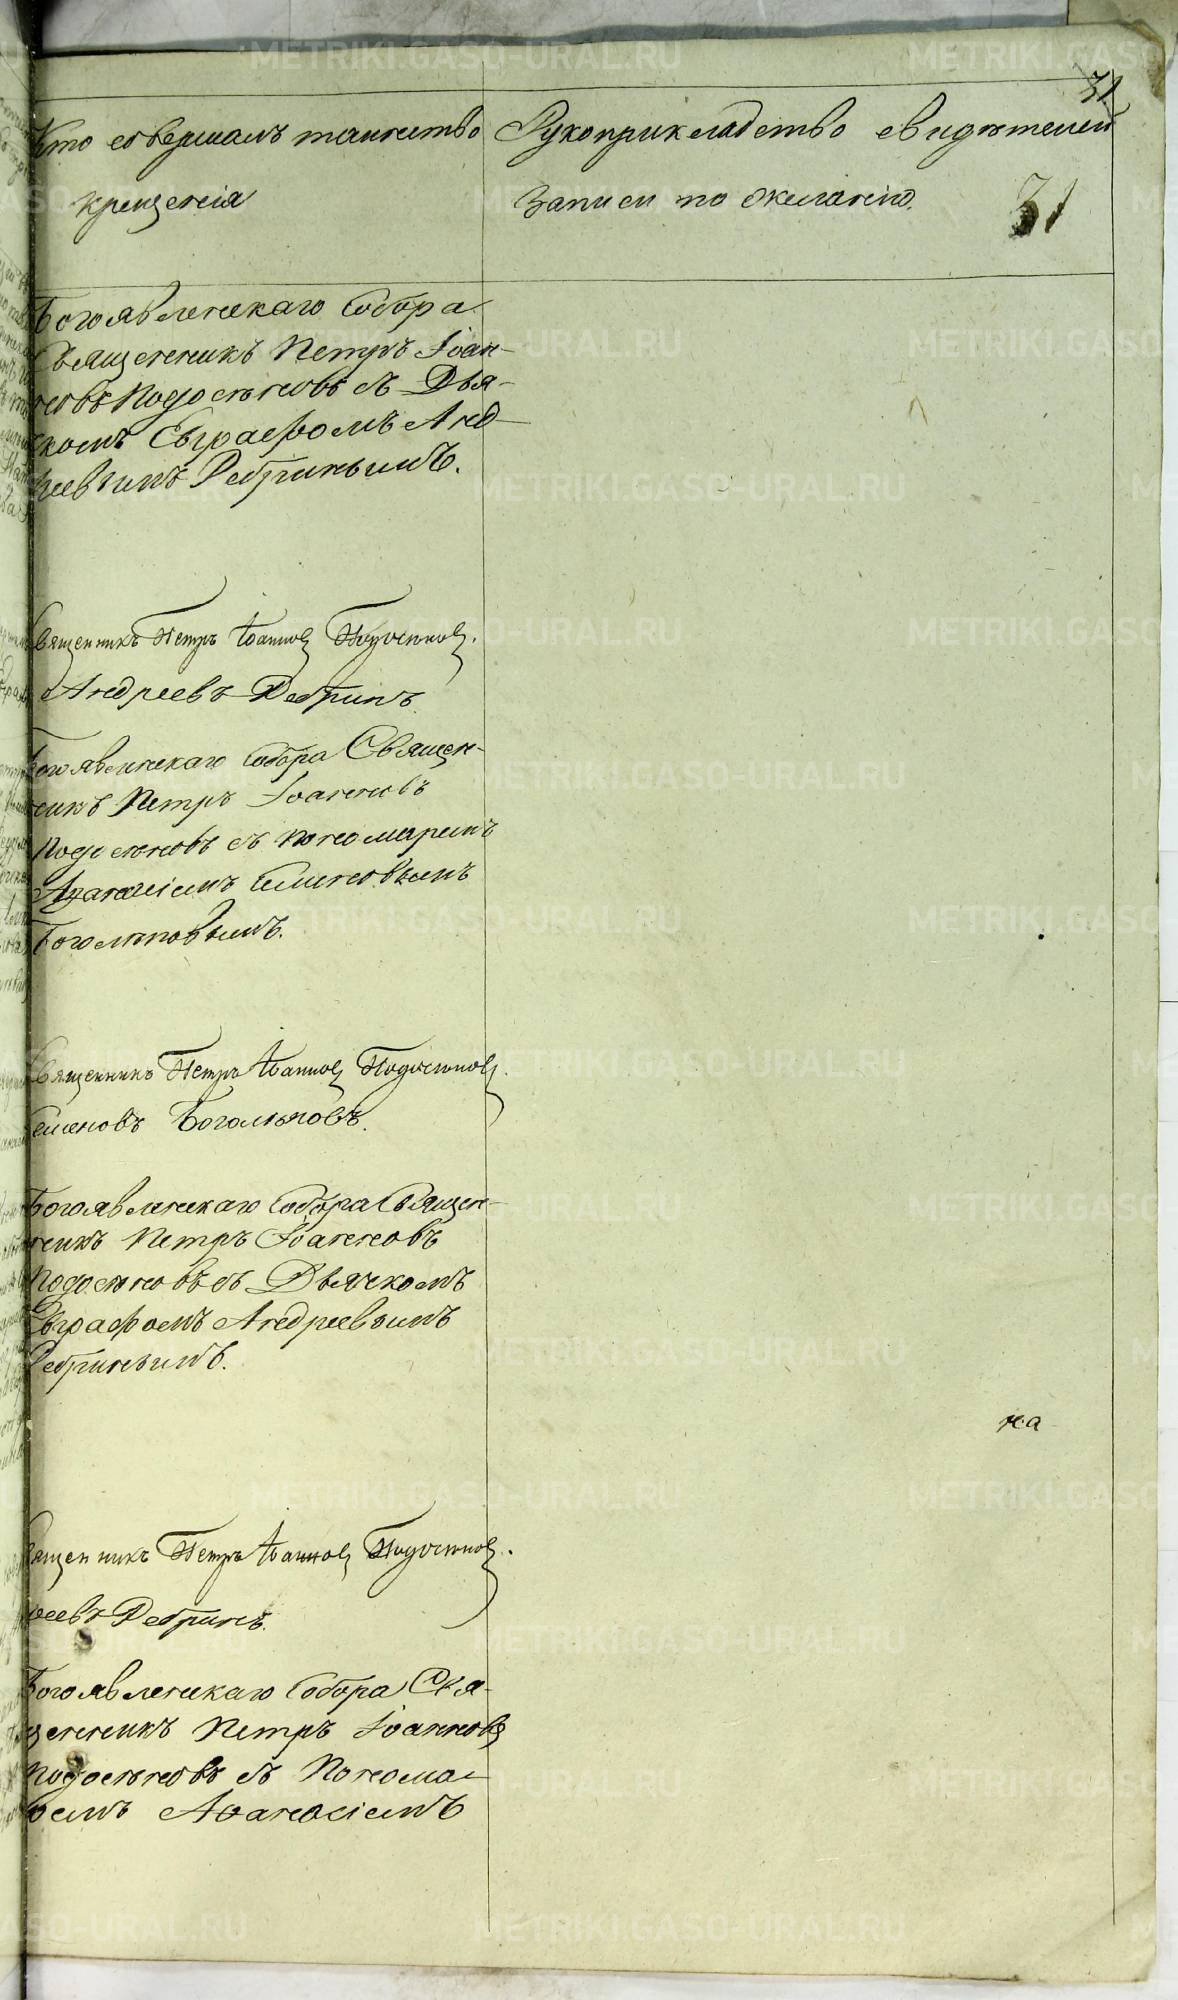 31
Кто совершалъ таинство крещенія
Рукоприкладство свидѣтелей записи по желанію.
31
Богоявленскаго Собора
Священникъ Петръ Іоан-
новъ Подосеновъ съ Дья-
комъ Евграфомъ Анд-
реевымъ Ребринымъ.
Священникъ Петръ Іоанновъ Подосеновъ.
Андреевъ Ребринъ.
Богоявленскаго Собора Священ-
никъ Петръ Іоанновъ
Подосеновъ съ Пономаремъ
Аѳанасіемъ Семеновымъ
Боголѣповымъ.
Священникъ Петръ Іоанновъ Подосеновъ.
Семеновъ Боголѣповъ.
Богоявленскаго Собора Священ-
никъ Петръ Іоанновъ
Подосеновъ съ Дьячкомъ
Евграфомъ Андреевымъ
Ребринымъ.
на
Священникъ Петръ Іоанновъ Подосеновъ.
реевъ Ребринъ.
Богоявленскаго Собора Свя-
щенникъ Петръ Іоанновъ
Подосеновъ съ Понома-
ремъ Аѳанасіемъ
METRIKI.GASO-URAL.RU